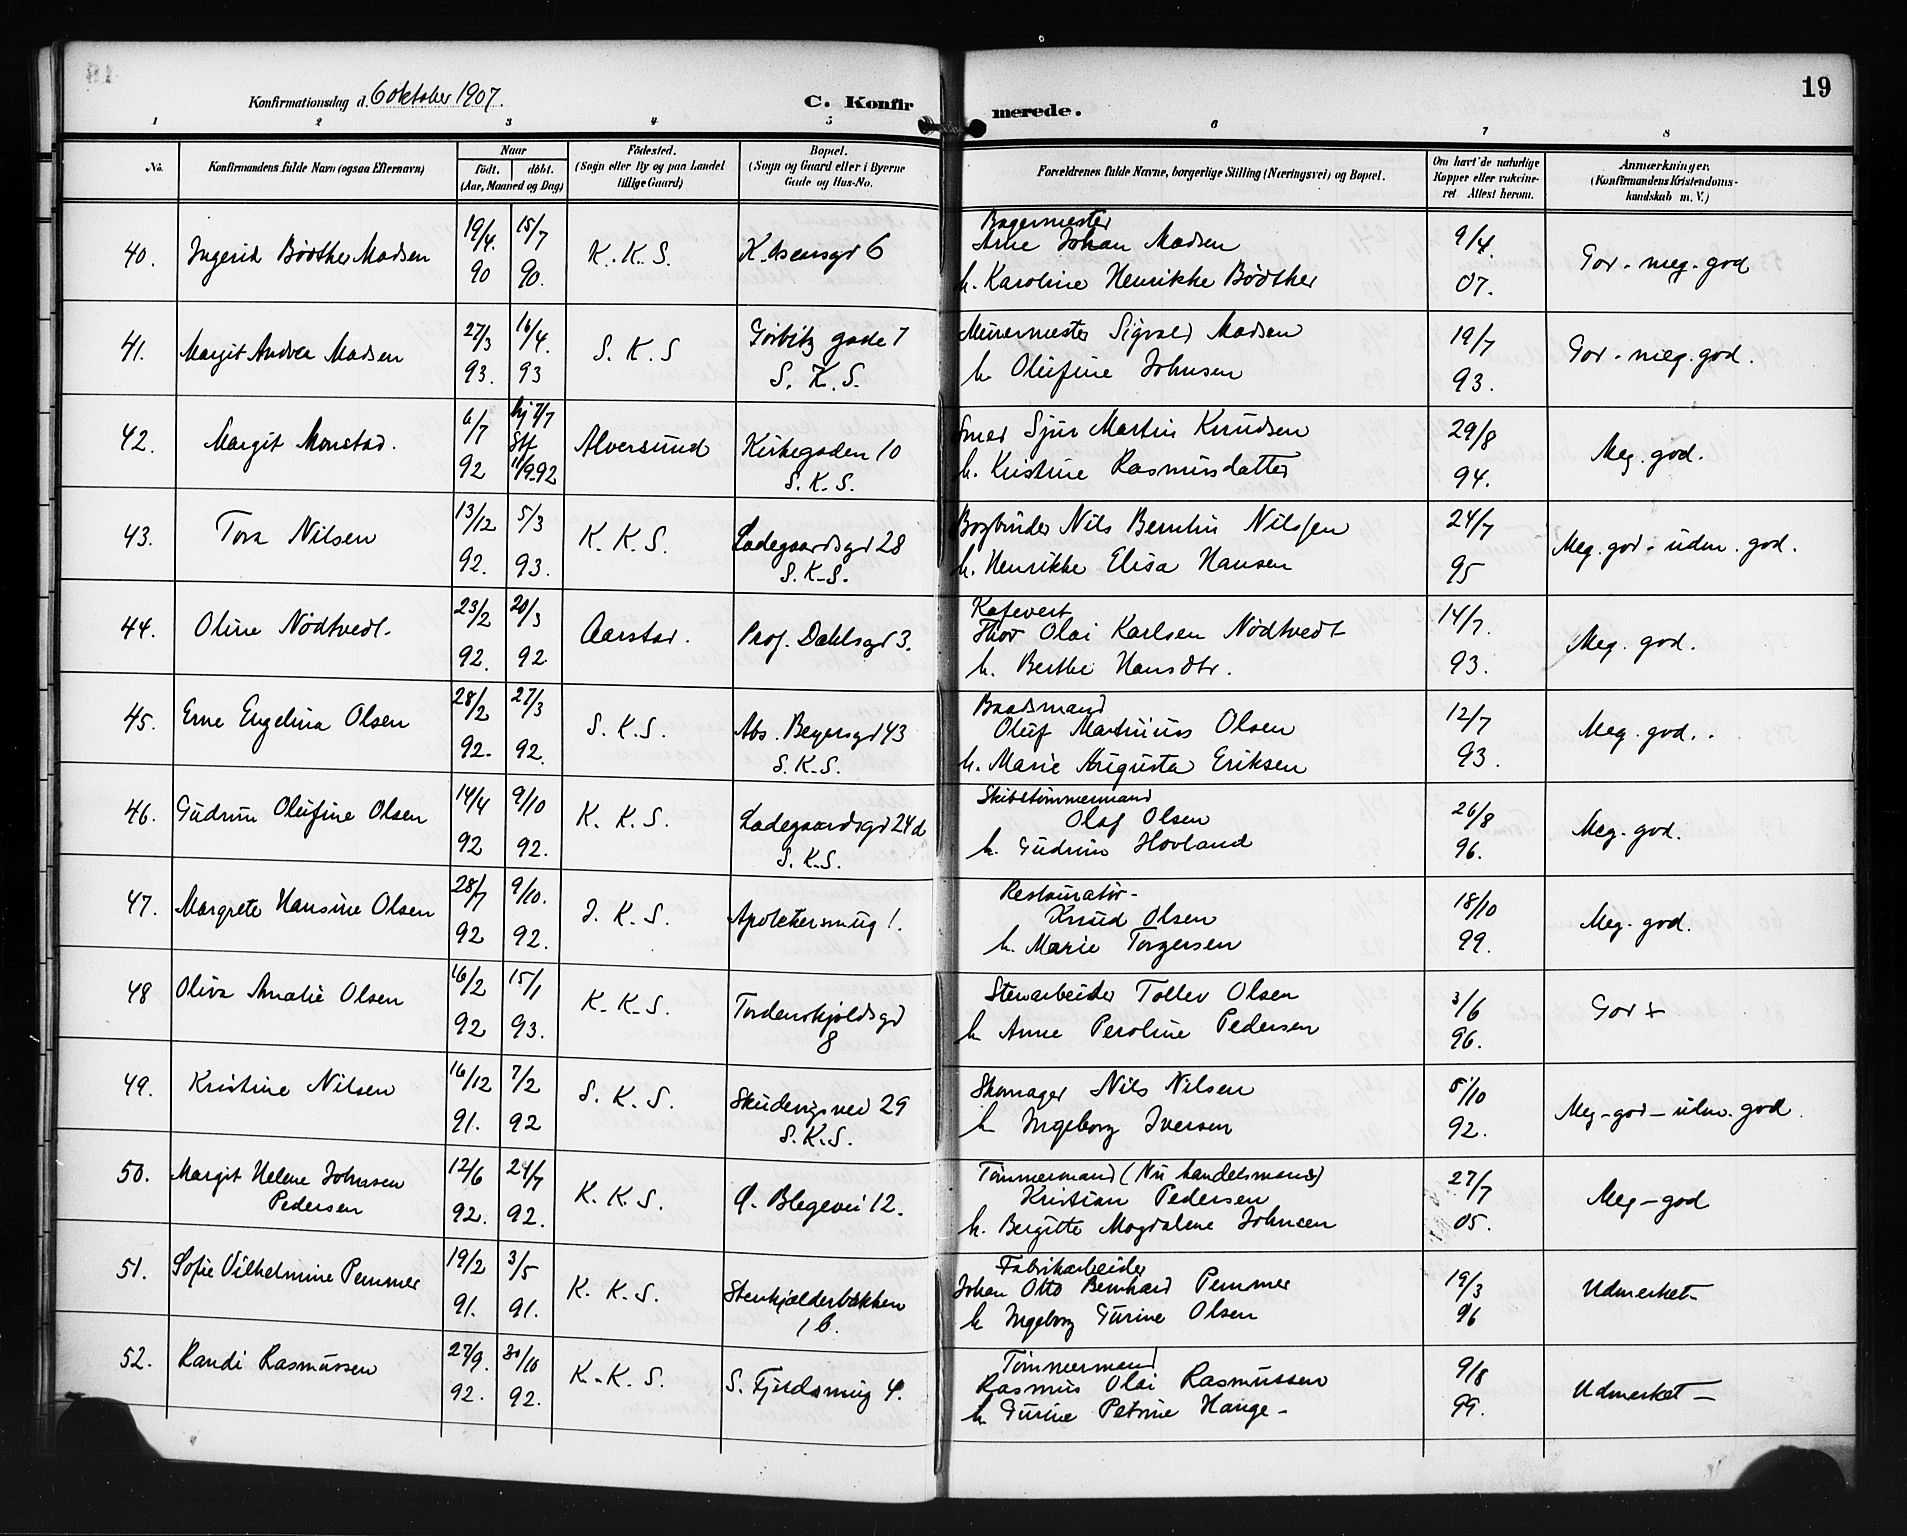 19
Konfirmationsdag d. 6 oktober 1907.
C. Konfirmerede.
1 2 3 4 5 6 7 8
No.
Konfirmandens fulde Navn (ogsaa Efternavn)
Naar
født. døbt.
(Aar, Maaned og Dag)
Fødested.
(Sogn eller By og paa Landet
tillige Gaard)
Bopæl.
(Sogn og Gaard eller i Byerne
Gade og Hus-No.
Forældrenes fulde Navne, borgerlige Stilling (Næringsvei) og Bopæl.
Om havt de naturlige
Kopper eller vakcine-
ret. Attest herom.
Anmærkninger.
(Konfirmandens Kristendoms-
kundskab m. V.)
40. Ingerid Bødtker Madsen
19/4. 90
15/7 90.
K. K. S.
6
Bagermester
Arne Johan Madsen
h. Karoline Henrikke Bødtker
9/4. 07.
God - meg. god
41. Margit Andrea Madsen
27/3 93.
16/4. 93
S. K. S
Gørbitz gade 7
S. K. S.
Murermester Sigvald Madsen
h. Olufine Johnsen
19/7 93.
God - meg. god.
42. Margit Monstad.
6/7 92
hj 7/7
Stf
11/9-92
Alversund
Kirkegaden 10
S. K. S.
Smed Sjur Martin Knudsen
h. Kristine Rasmusdatter
29/8 94.
Meg. god.
43. Tora Nilsen
13/12 92.
5/3 93.
K. K. S.
Ladegaardsgd 28
S. K. S.
Bogbinder Nils Berntin Nilssen
h. Henrikke Elisa Hansen
24/7 95
Meg. god - udm. god.
44. Oline Nödtvedt.
23/2 92.
20/3 92
Aarstad.
Prof. Dahlsgd 3.
Kafevert
Thor Olai Karlsen Nödtvedt
h. Berthe Hansdtr.
14/7. 93.
Meg. god.
45. Erne Engelina Olsen
28/2 92.
27/3 92.
S. K. S.
Abs. Beyersgd 43
S. K. S.
Baadsmand
Oluf Martinius Olsen
h. Marie Augusta Eriksen
12/7 93.
Meg. god.
46. Gudrun Olufine Olsen
14/4 92
9/10 92.
K. K. S.
Ladegaardsgd 24d
S. K. S.
Skibstømmermand
Olaf Olsen
h. Gudrun Hovland
26/8 96.
Meg. god.
47. Margrete Hansine Olsen
28/7 92
9/10. 92.
J. K. S.
Apotekersmug 1.
Restauratør
Knud Olsen
h. Marie Torgersen
18/10 99.
Meg. god.
48 Oliva Amalie Olsen
16/2 92
15/1 93.
K. K. S.
Tordenskjoldsgd
8
Stenarbeider Tollev Olsen
h Anne Peroline Pedersen
3/6 96.
God +
49. Kristine Nilsen
16/12 91.
7/2 92
S. K. S.
Skudevigsvei 29
S. K. S.
Skomager Nils Nilsen
h Ingeborg Iversen
5/10 92.
Meg - god - udm. god.
50. Margit Helene Johnsen
Pedersen
12/6 92.
24/7 92.
K. K. S.
Ø. Blegevei 12.
Tømmermand (Nu handelsmand)
Kristian Pedersen
h. Bergitte Magdalene Johnsen
27/7 05.
Meg - god
51. Sofie Vilhelmine Pemmer
19/2 91.
3/5 91.
K. K. S.
Stenkjælderbakken
1 b.
Fabrikarbeider
Johan Otto Bernhard Pemmer
h Ingeborg Gurine Olsen
19/3 96
Udmerket
52. Randi Rasmussen
27/9. 92.
30/10 92.
K. K. S.
S. Fjeldsmug 4.
Tømmermand
Rasmus Olai Rasmussen
h Gurine Petrine Hauge
9/8 99.
Udmerket